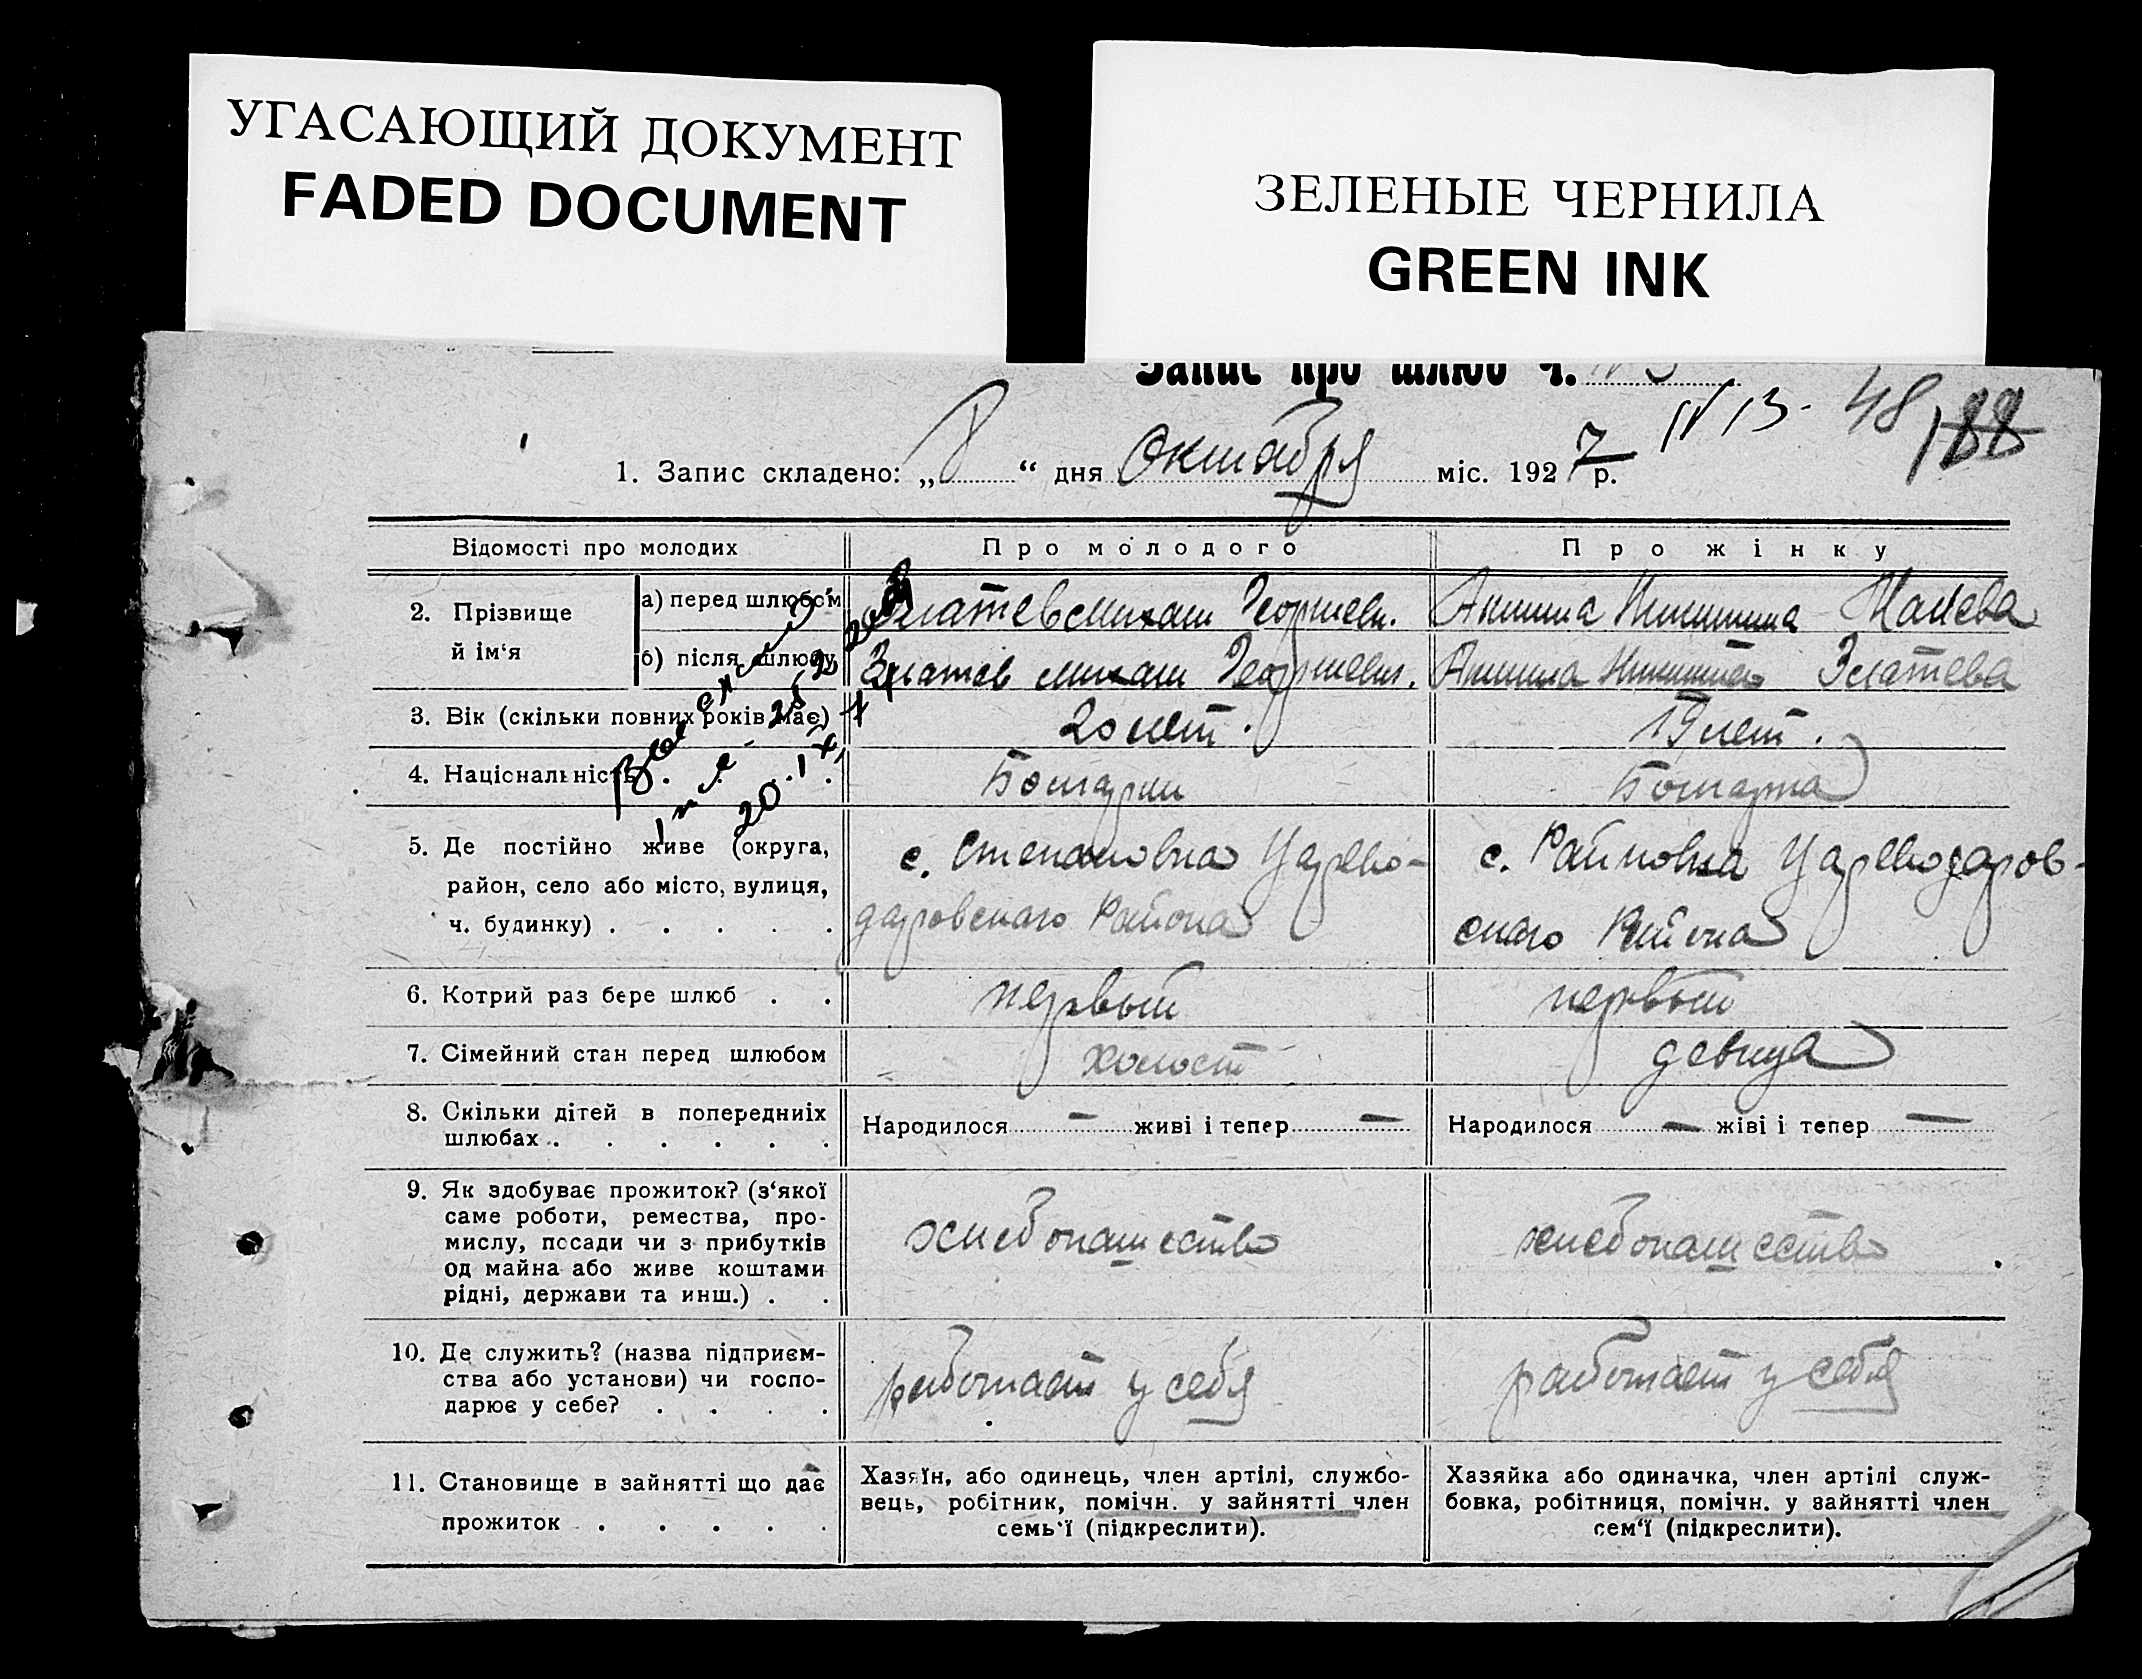 УГАСАЮЩИЙ ДОКУМЕНТ
FADED DOCUMENT
ЗЕЛЕНЫЕ ЧЕРНИЛА
GREEN INK
Запис про шлюб ч.
N 13. 48 188
1. Запис складено: „8“ дня Октября міс. 1927 р.
Відомості про молодих Про молодого Про жінку
2. Прізвище й ім‘я
а) перед шлюбом Златев Михаил Георгиев. Никитина
б) після шлюбу Златев Михаил Георгиев. Златева
3. Вік (скільки повних років має) 20 лет. 19 лет.
4. Національність Болгарин Болгарка
5. Де постійно живе (округа,
район, село або місто, вулиця,
ч. будинку)
с. Степановка Царево-
даровского Района
с. Райновка Цареводаров-
ского Района
6. Котрий раз бере шлюб первый первый
7. Сімейний стан перед шлюбом холост девица
8. Скільки дітей в попередниіх
шлюбах
Народилося — живі і тепер —
Народилося — жіві і тепер —
9. Як здобуває прожиток? (з‘якої
саме роботи, ремества, про-
мислу, посади чи з прибутків
од майна або живе коштами
рідні, держави та инш.)
хлебопашество хлебопашество
10. Де служить? (назва підприєм-
ства або установи) чи госпо-
дарює у себе?
работает у себя работает у себя
11. Становище в зайнятті що дає
прожиток
Хазяїн, або одинець, член артілі, службо-
вець, робітник, помічн. у зайнятті член
семь‘ї (підкреслити).
Хазяйка або одиначка, член артілі служ-
бовка, робітниця, помічн. у зайнятті член
сем‘ї (підкреслити).